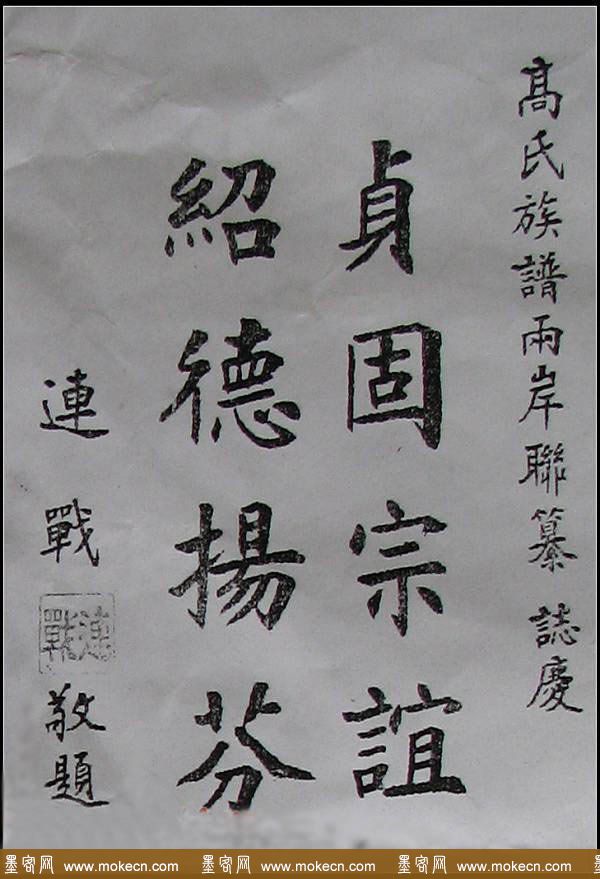 髙氏族譜兩岸聯纂誌慶
貞固宗誼
紹德揚芬
連戰
連戰
敬題
墨客网 www.mokecn.com 墨客网 www.mokecn.com 墨客网 www.mokecn.com